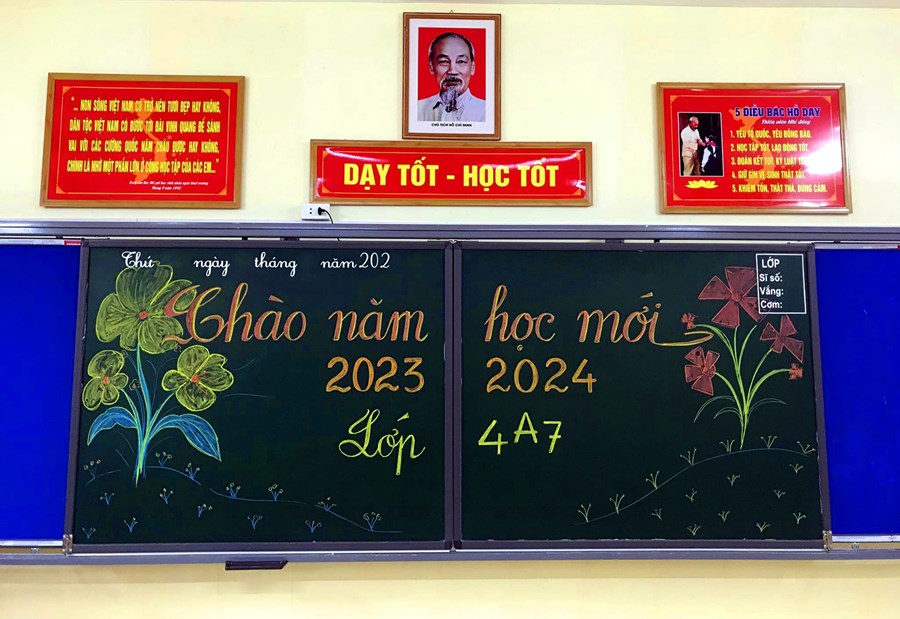 CHỦ TỊCH HỒ CHÍ MINH
"... NON SÔNG VIỆT NAM CÓ TRỞ NÊN TƯƠI ĐẸP HAY KHÔNG,
DÂN TỘC VIỆT NAM CÓ BƯỚC TỚI ĐÀI VINH QUANG ĐỂ SÁNH
VAI VỚI CÁC CƯỜNG QUỐC NĂM CHÂU ĐƯỢC HAY KHÔNG,
CHÍNH LÀ NHỜ MỘT PHẦN LỚN Ở CÔNG HỌC TẬP CỦA CÁC EM..."
DẠY TỐT - HỌC TỐT
5 ĐIỀU BÁC HỒ DẠY
Thiếu niên Nhi đồng
1. YÊU TỔ QUỐC, YÊU ĐỒNG BÀO.
2. HỌC TẬP TỐT, LAO ĐỘNG TỐT.
3. ĐOÀN KẾT TỐT, KỶ LUẬT TỐT.
4. GIỮ GÌN VỆ SINH THẬT TỐT.
5. KHIÊM TỐN, THẬT THÀ, DŨNG CẢM.
Thứ ngày tháng năm 202
LỚP
Sĩ số:
Vắng:
Cơm:
Chào năm học mới
2023 2024
Lớp 4A7